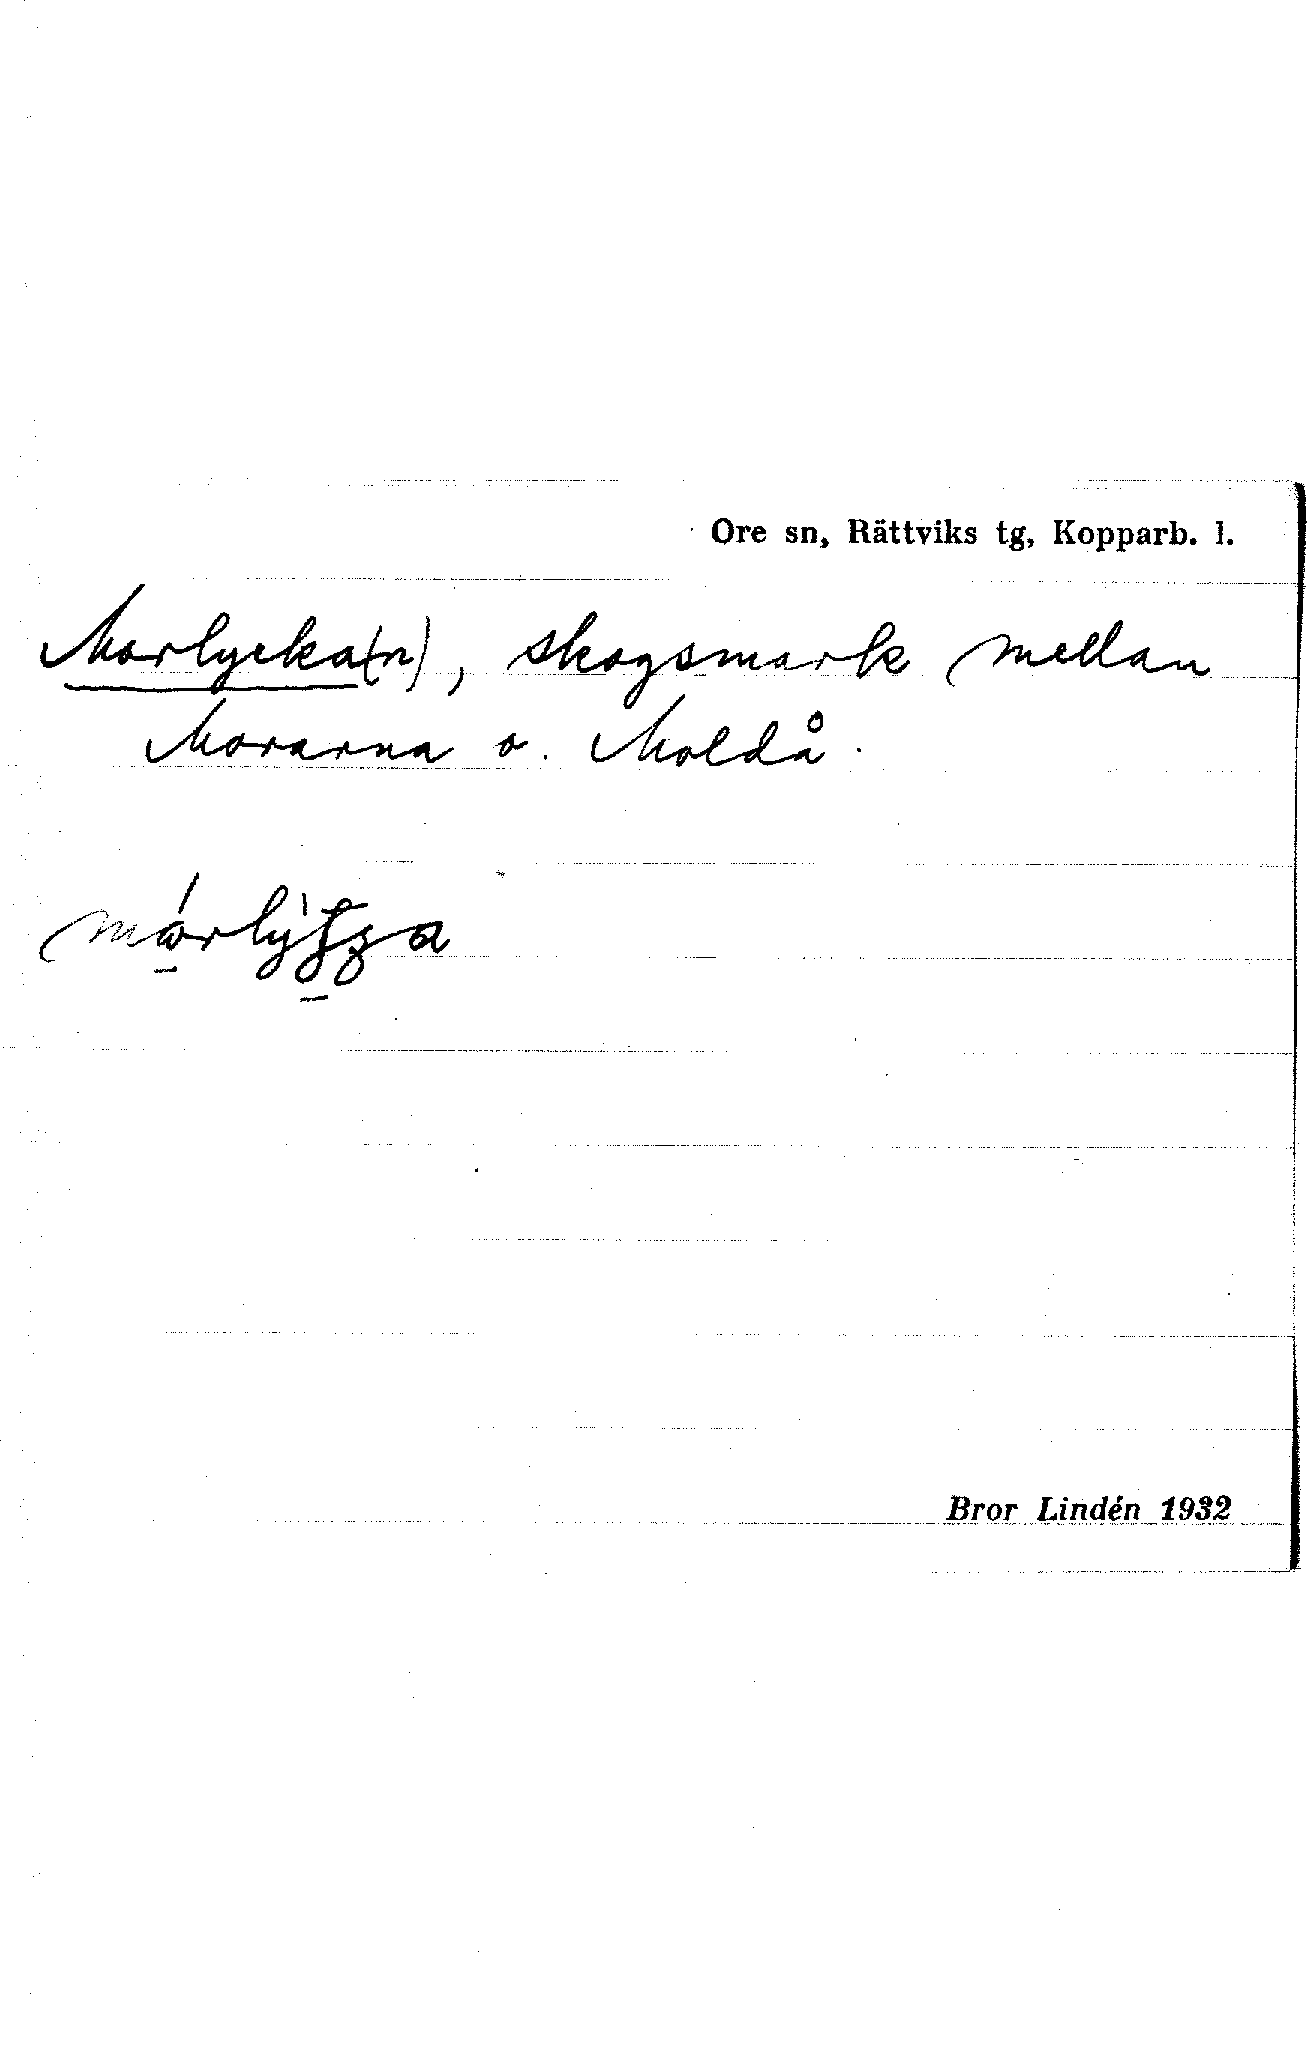 Ore sn, Rättviks tg, Kopparb. l.
Morlycka(n), skogsmark mellan
Morarna o. Moldå.
Bror Lindén 1932